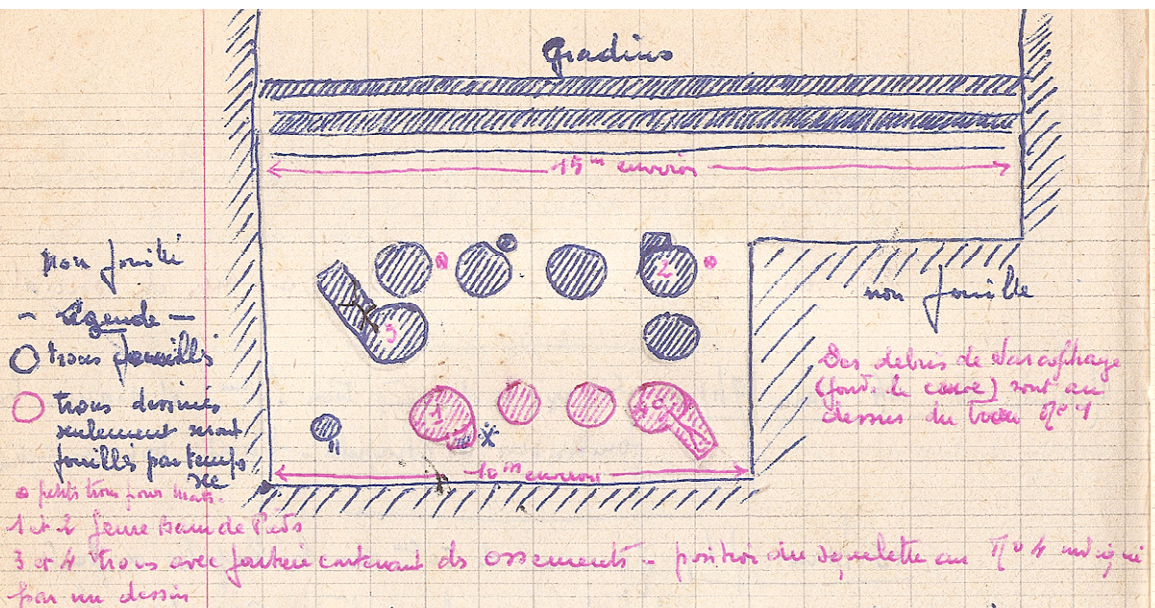 Gradins
15m environ
non fouillé
non fouillé
- Légende -
trous fouillés
trous dessinés
seulement seront
fouillés par temps
sec
petits trous pour mats.
2
3
1
4
10m environ
Des debris de Sarcophage
(fond de cuve) sont au
dessus du trou n° 1
1 et 2 Pieds
3 et 4 trous avec contenant ds ossements - position du squelette au n° 4 indiqué
par un dessin